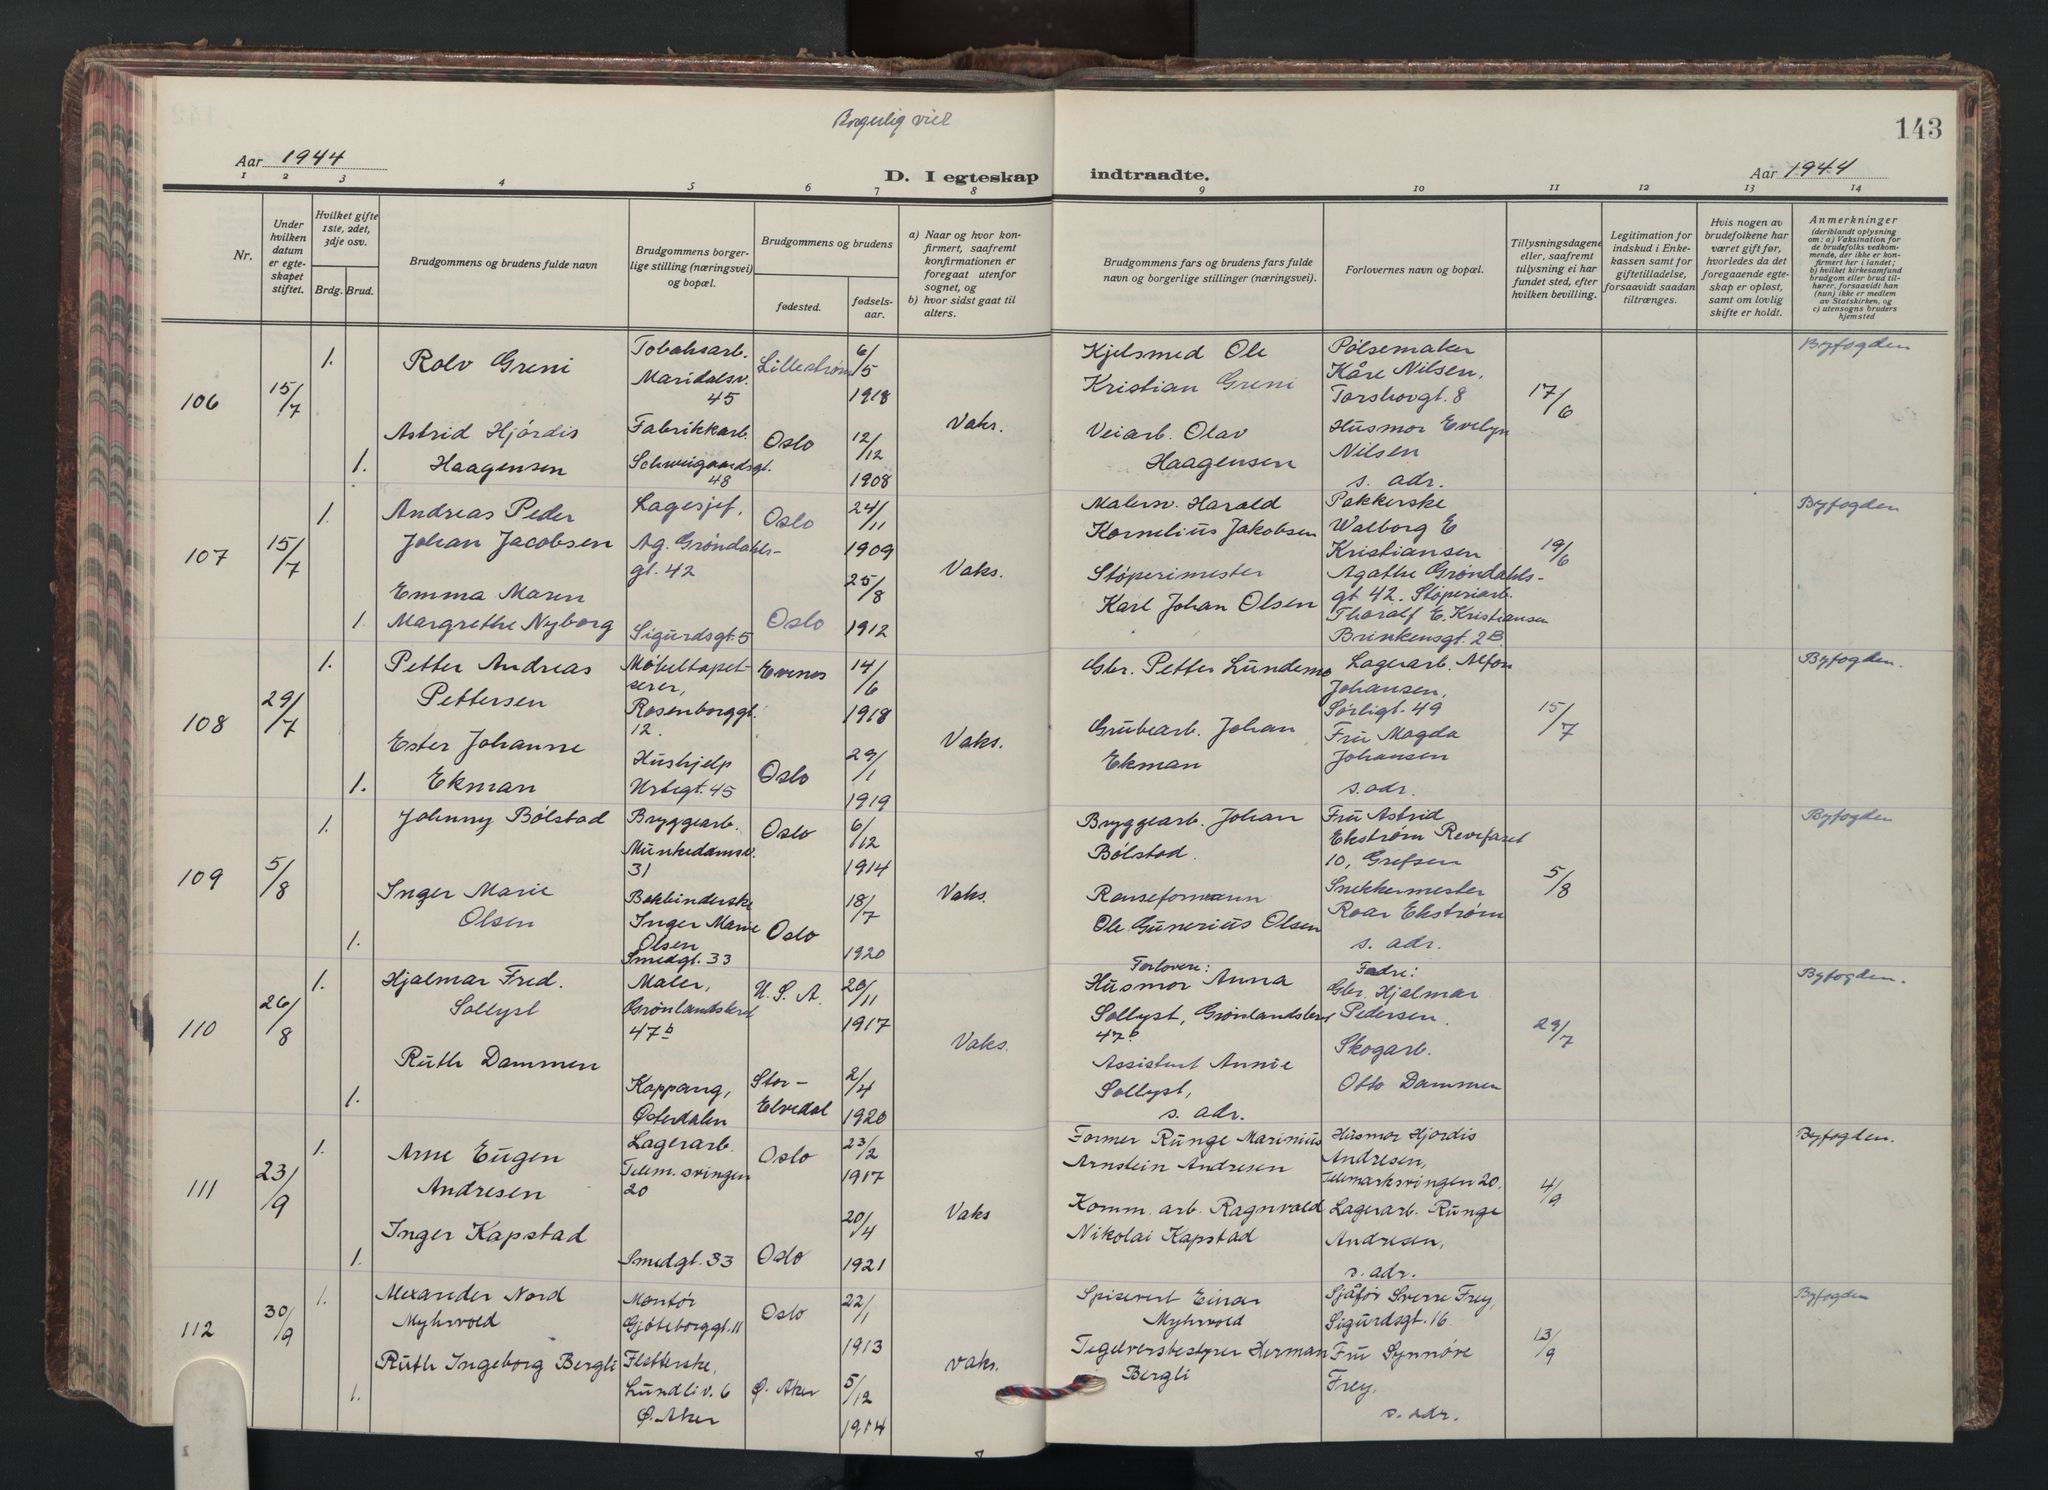 Borgerlig viet
143
Aar 1944
D. I egteskap indtraadte.
Aar 1944
1 2 3 4 5 6 7 8 9 10 11 12 13 14
Nr.
Under hvilken datum er egteskapet stiftet.
Hvilket gifte 1ste, 2det, 3dje osv.
Brdg. Brud.
Brudgommens og brudens fulde navn
Brudgommens borgerlige stilling (næringsvei) og bopæl.
Brudgommens og brudens
fødested.
fødselsaar.
a) Naar og hvor konfirmert, saafremt konfirmationen er foregaat utenfor sognet, og
b) hvor sidst gaat til alters.
Brudgommens fars og brudens fars fulde navn og borgerlige stillinger (næringsvei).
Forlovernes navn og bopæl.
Tillysningsdagene eller, saafremt tillysning ei har fundet sted, efter hvilken bevilling.
Legitimation for indskud i Enkekassen samt for giftetilladelse, forsaavidt saadan tiltrænges.
Hvis nogen av brudefolkene har været gift før, hvorledes da det foregaaende egteskap er opløst, samt om lovlig skifte er holdt.
Anmerkninger (deriblandt oplysning om: a) Vaksination for de brudefolks vedkommende, der ikke er konfirmert her i landet; b) hvilket kirkesamfund brudgom eller brud tilhører, forsaavidt han (hun) ikke er medlem av Statskirken, og c) utensogns bruders hjemsted
106
15/7
1.
Rolv Greni
Tobaksarb.
Maridalsv.
45
Lillestrøm
6/5
1918
Kjelsmed Ole
Kristian Greni
Pølsemaker
Kåre Nilsen,
Torshovgt. 8
17/6
Byfogden
1.
Astrid Hjördis
Haagensen
Fabrikkarb.
Schweigaardsgt.
48
Oslo
12/12
1908
Vaks.
Veiarb. Olav
Haagensen
Husmor Evelyn
Nilsen
s. adr.
107
15/7
1.
Andreas Peder
Johan Jacobsen
Lagesjef,
Ag. Grøndahls-
gt. 42
Oslo
24/11
1909
Malerm. Harald
Kornelius Jakobsen
Pakkerske
Walborg E
Kristiansen
Agathe Grøndahls-
gt 42. Støperiarb.
19/6
Byfogden
1.
Emma Maren
Margrethe Nyborg
Sigurdsgt. 5
Oslo
25/8
1912
Vaks.
Støperimester
Karl Johan Olsen
Tharalf E. Kristiansen
Brinkensgt. 2B
108
29/7
1.
Petter Andreas
Pettersen
Møbeltapet-
serer,
Rosenborggt.
12.
Evenes
14/6
1918
Gbr. Petter Lundemo
Lagerarb. Alfon
Johansen,
Sørligt. 49
15/7
Byfogden.
1.
Ester Johanne
Ekman
Hushjelp
Urtegt. 45
Oslo
29/1
1919
Vaks.
Grubearb. Johan
Ekman
Fru Magda
Johansen
s. adr.
109
5/8
1.
Johnny Bölstad
Bryggearb.
Munkedamsv.
31
Oslo
6/12
1914
Bryggearb. Johan
Bölstad.
Fru Astrid
Ekstrøm Revefaret
10, Grefsen
5/8
Byfogden
1.
Inger Marie
Olsen
Bokbinderske
Inger Marie
Olsen
Smedgt. 33
Oslo
18/7
1920
Vaks.
Renseformann
Ole Gunerius Olsen
Snekkermester
Roar Ekstrøm
s. adr.
110
26/8
1.
Hjalmar Fred.
Sollyst
Maler,
Grønlandsleret
47b
U. S. A.
20/11
1917
Forlovere:
Husmor Anna
Sollyst, Grønlandsleret
47b
Fedre:
Gbr. Hjalmar
Pedersen.
29/7
Byfogden.
1.
Ruth Dammen
Koppang,
Østerdalen
Stor-
Elvedal
2/4
1920
Vaks.
Assistent Annie
Sollyst,
s. adr.
Skogarb.
Otto Dammen
111
23/9
1.
Arne Eugen
Andresen
Lagerarb.
Telem. svingen
20
Oslo
23/2
1917
Former Runge Marinius
Arnstein Andresen
Husmor Hjordis
Andresen,
Telemarksvingen 20.
4/9
Byfogden.
1.
Inger Kapstad
Smedgt. 33
Oslo
20/4
1921
Vaks
Komm. arb. Ragnvald
Nikolai Kapstad
Lagerarb. Runge
Andresen,
s. adr.
112
30/9
1.
Alexander Nord
Myhrvold
Montør
Gjøteborggt. 11
Oslo
22/1
1913
Spisevert Einar
Myhrvold
Sjåför Sverre Frey,
Sigurdsgt. 16.
13/9
Byfogden
1.
Ruth Ingeborg Bergli
Fletterske,
Lundliv. 6
Ø. Aker
Ø. Aker
5/12
1914
Vaks.
Teglverksbestyrer Herman
Bergli
Fru Synnöve
Frey,
s. adr.